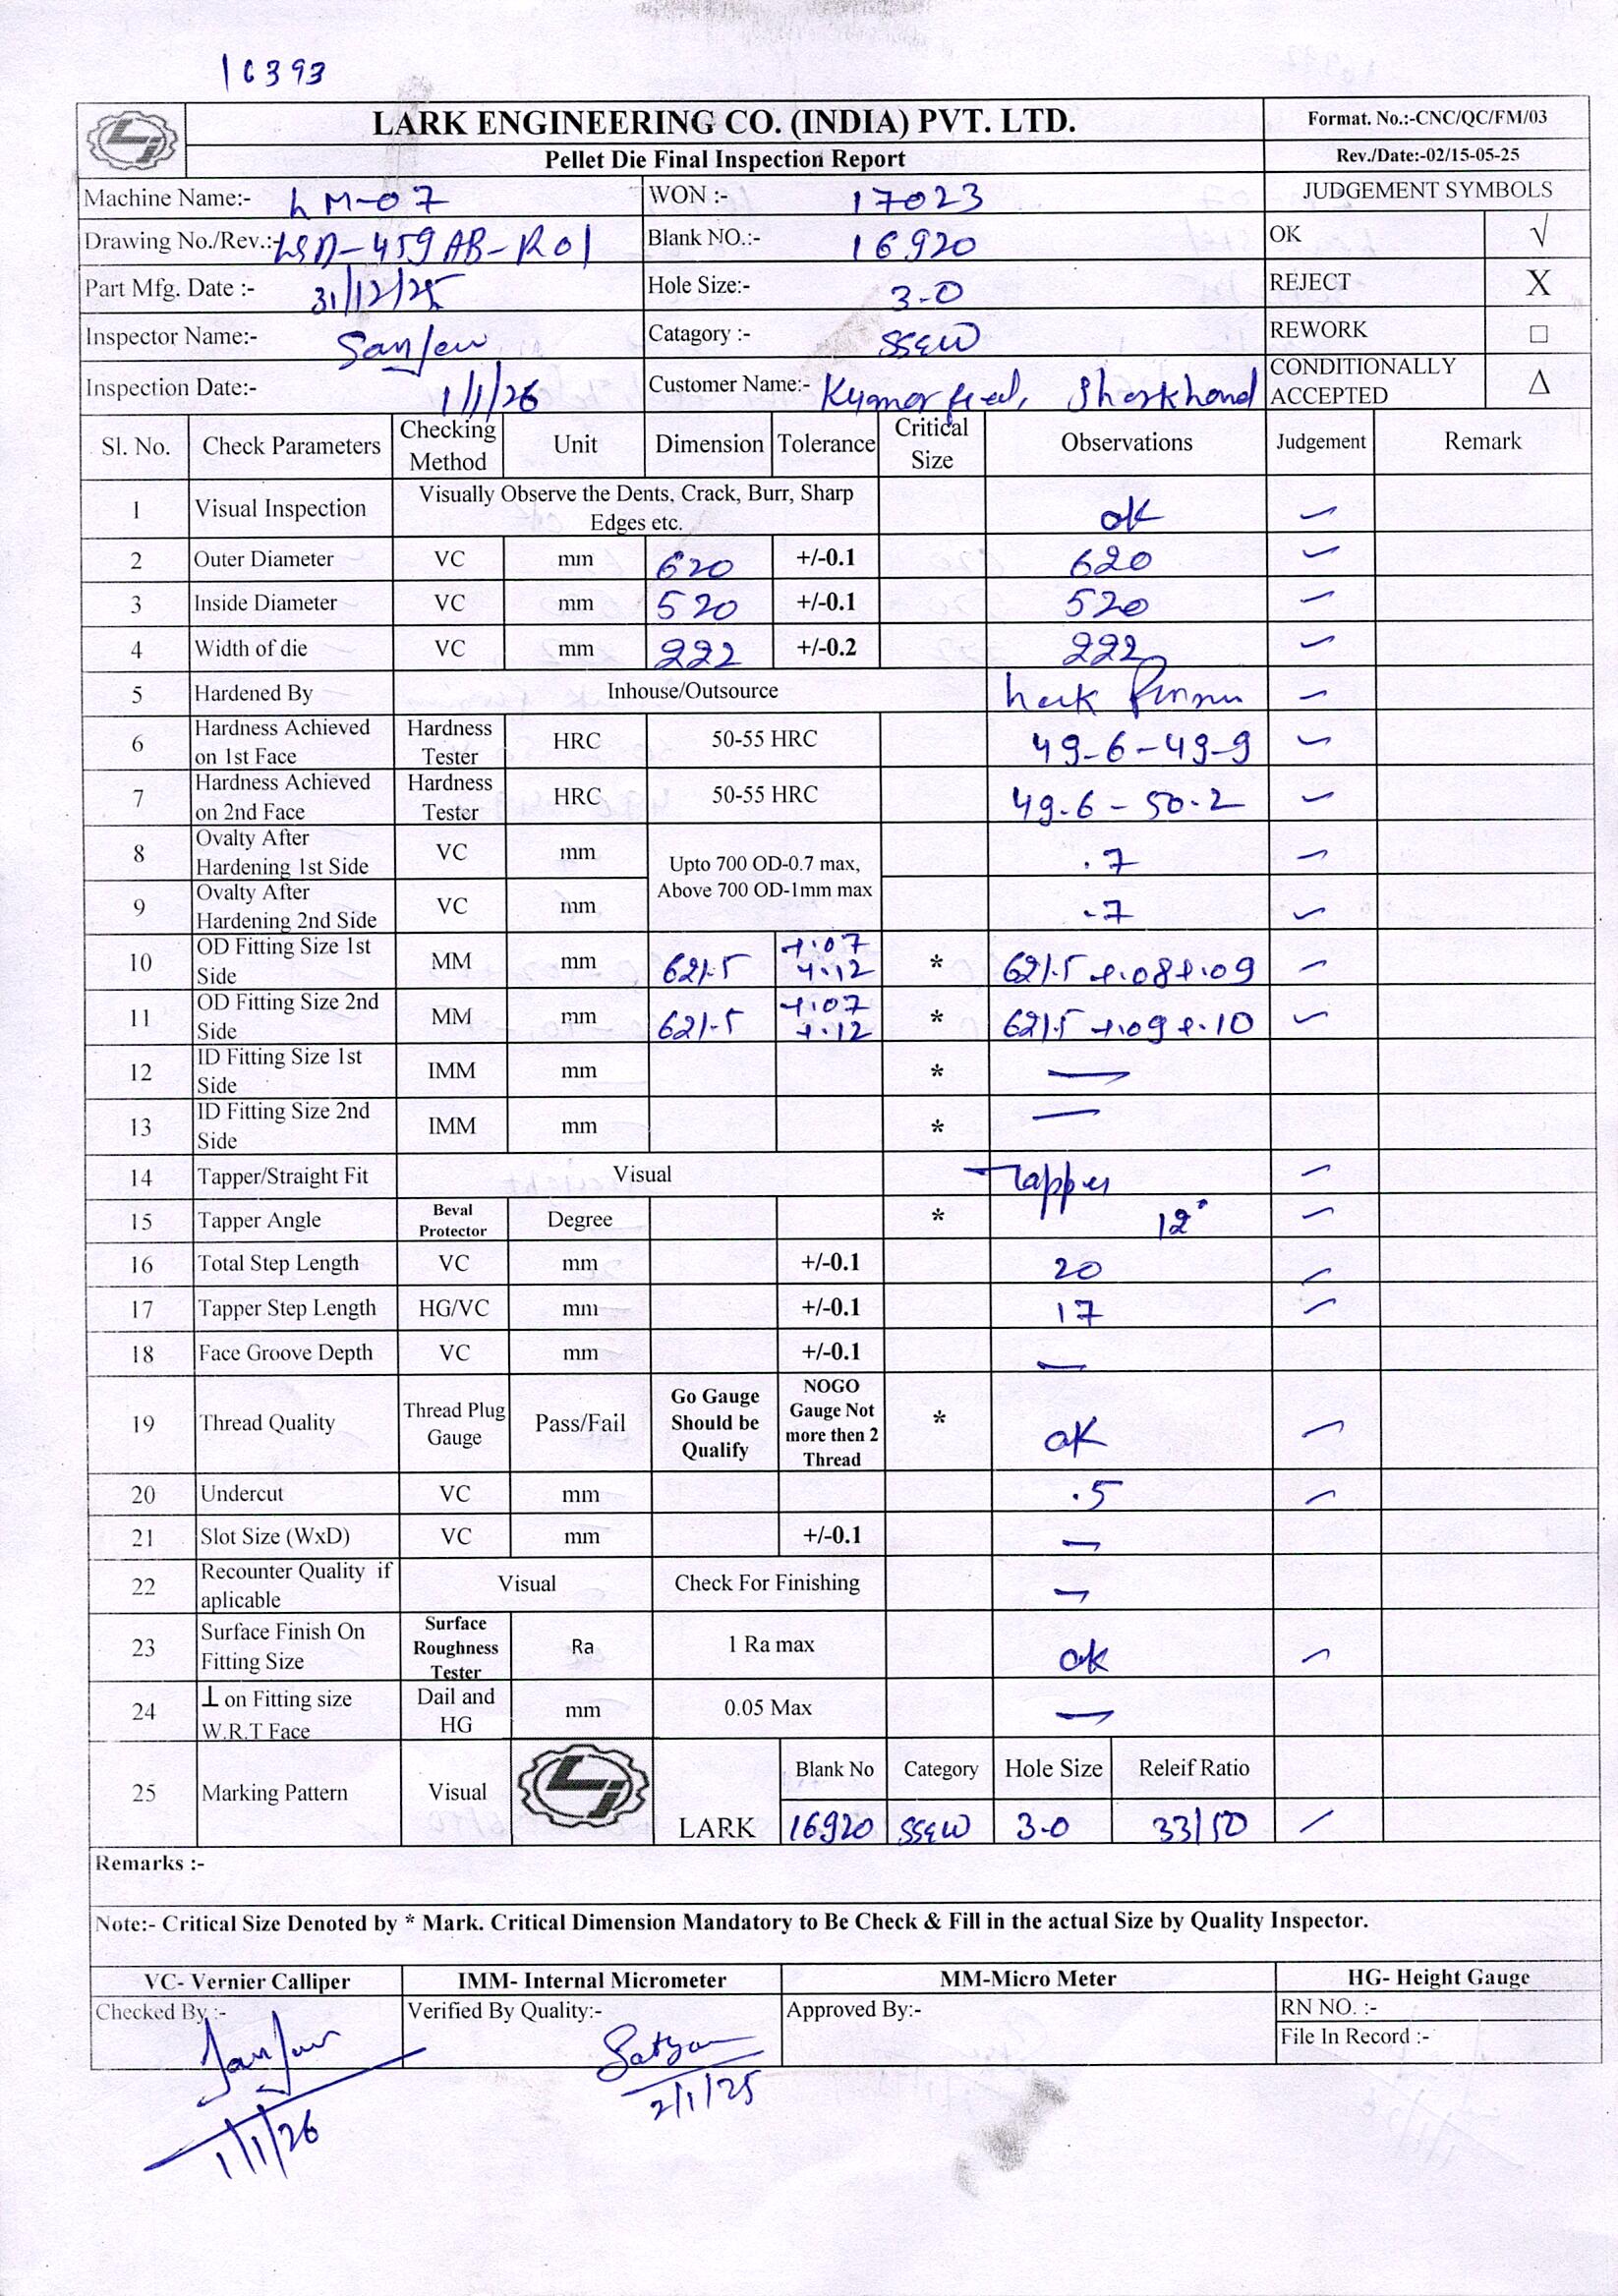 16393
LARK ENGINEERING CO. (INDIA) PVT. LTD.
Format. No.:-CNC/QC/FM/03
Pellet Die Final Inspection Report
Rev./Date:-02/15-05-25
Machine Name:- LM-07 WON :- 17023 JUDGEMENT SYMBOLS
Drawing No./Rev.:- LSD-459AB-R01 Blank NO.:- 16920 OK √
Part Mfg. Date :- 31/12/25 Hole Size:- 3.0 REJECT X
Inspector Name:- Sanjeev Catagory :- SS&W REWORK □
Inspection Date:- 1/1/26 Customer Name:- Kumar feed, Jharkhand CONDITIONALLY ACCEPTED Δ
Sl. No. Check Parameters Checking Method Unit Dimension Tolerance Critical Size Observations Judgement Remark
1 Visual Inspection Visually Observe the Dents, Crack, Burr, Sharp Edges etc. ok ✓
2 Outer Diameter VC mm 620 +/-0.1 620 ✓
3 Inside Diameter VC mm 520 +/-0.1 520 ✓
4 Width of die VC mm 222 +/-0.2 222 ✓
5 Hardened By Inhouse/Outsource ✓
6 Hardness Achieved on 1st Face Hardness Tester HRC 50-55 HRC 49-6-49-9 ✓
7 Hardness Achieved on 2nd Face Hardness Tester HRC 50-55 HRC 49.6 - 50.2 ✓
8 Ovalty After Hardening 1st Side VC mm Upto 700 OD-0.7 max, Above 700 OD-1mm max .7 ✓
9 Ovalty After Hardening 2nd Side VC mm .7 ✓
10 OD Fitting Size 1st Side MM mm 621.5 +.07 +.12 * 621.5 +.08+.09 ✓
11 OD Fitting Size 2nd Side MM mm 621.5 +.07 +.12 * 621.5 +.09+.10 ✓
12 ID Fitting Size 1st Side IMM mm * —
13 ID Fitting Size 2nd Side IMM mm * —
14 Tapper/Straight Fit Visual Tapper ✓
15 Tapper Angle Beval Protector Degree * 12° ✓
16 Total Step Length VC mm +/-0.1 20 ✓
17 Tapper Step Length HG/VC mm +/-0.1 17 ✓
18 Face Groove Depth VC mm +/-0.1 —
19 Thread Quality Thread Plug Gauge Pass/Fail Go Gauge Should be Qualify NOGO Gauge Not more then 2 Thread * ok ✓
20 Undercut VC mm .5 ✓
21 Slot Size (WxD) VC mm +/-0.1 —
22 Recounter Quality if aplicable Visual Check For Finishing —
23 Surface Finish On Fitting Size Surface Roughness Tester Ra 1 Ra max ok ✓
24 ⊥ on Fitting size W.R.T Face Dail and HG mm 0.05 Max —
25 Marking Pattern Visual LARK Blank No Category Hole Size Releif Ratio
16920 SS&W 3.0 33/50 ✓
Remarks :-
Note:- Critical Size Denoted by * Mark. Critical Dimension Mandatory to Be Check & Fill in the actual Size by Quality Inspector.
VC- Vernier Calliper IMM- Internal Micrometer MM-Micro Meter HG- Height Gauge
Checked By :- Sanjeev Verified By Quality:- Satyam Approved By:- RN NO. :-
File In Record :-
1/1/26 2/1/25